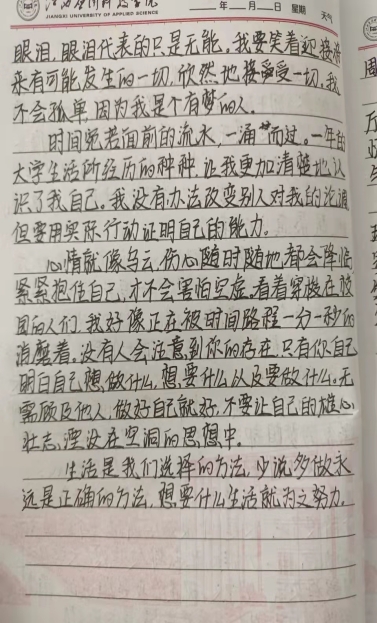 江西应用科技学院
JIANGXI UNIVERSITY OF APPLIED SCIENCE
年 月 日 星期 天气
眼泪,眼泪代表的只是无能。我要笑着迎接将
来有可能发生的一切,欣然地接受一切。我
不会孤单,因为我是个有梦的人。
时间宛若面前的流水,一涌而过。一年的
大学生活所经历的种种,让我更加清楚地认
识了我自己。我没有办法改变别人对我的论调
但要用实际行动证明自己的能力。
心情就像乌云,伤心随时随地都会降临
紧紧抱住自己,才不会害怕空虚。看着穿梭在校
园的人们,我好像正在被时间路程一分一秒的
消磨着。没有人会注意到你的存在,只有你自己
明白自己想做什么,想要什么以及要做什么。无
需顾及他人,做好自己就好,不要让自己的雄心
壮志,湮没在空洞的思想中。
生活是我们选择的方法,少说多做永
远是正确的方法,想要什么生活就为之努力。